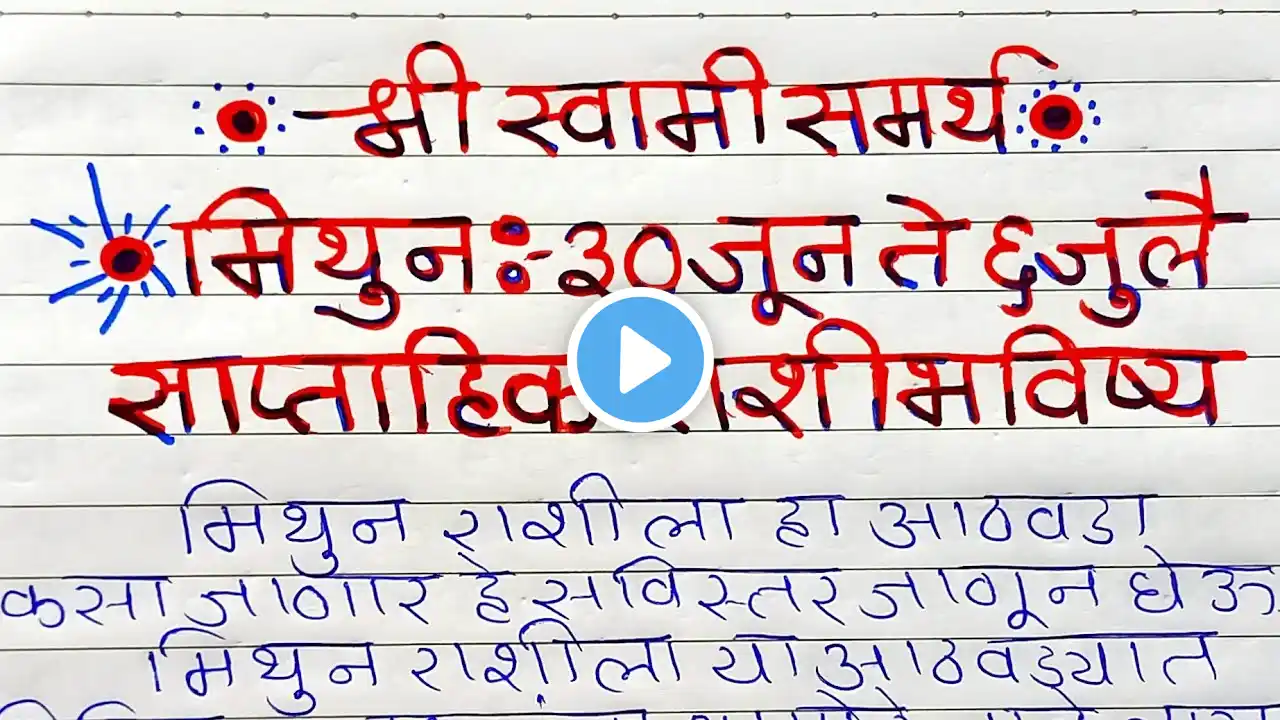 श्री स्वामी समर्थ
मिथुन :- ३० जून ते ६ जुलै
साप्ताहिक राशीभविष्य
मिथुन राशीला हा आठवडा
कसा जाणार हे सविस्तर जाणून घेऊ
मिथुन राशीला या आठवड्यात